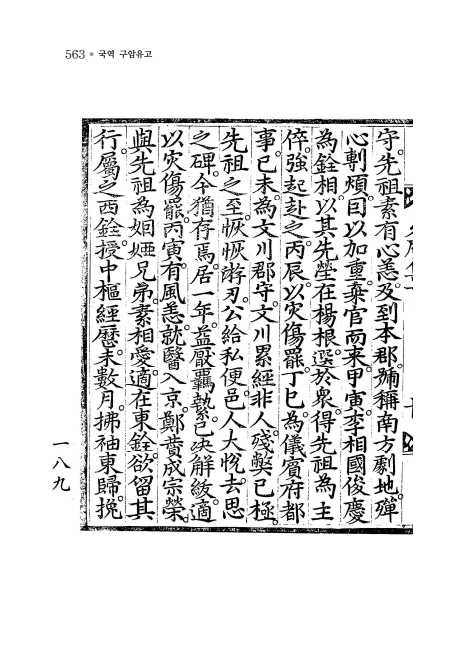 563 ● 국역 구암유고
守。先祖素有心恙。及到本郡。號稱南方劇地。殫
心剸煩。因以加重。棄官而來。甲寅。李相國俊慶
為銓相。以其先塋在楊根。選於衆。得先祖為主
倅。強起赴之。丙辰。以灾傷罷。丁巳。為儀賓府都
事。己未。為文川郡守。文川累經非人。殘弊已極。
先祖之至。恢恢游刃。公給私便。邑人大悅。去思
之碑。今猶存焉。居一年。益厭羈縶。已決解紱。適
以灾傷罷。丙寅。有風恙。就醫入京。鄭賛成宗榮。
與先祖為姻婭。兄弟。素相愛。適在東銓。欲留其
行。屬之西銓。授中樞經歷。未數月。拂袖東歸。挽
一八九